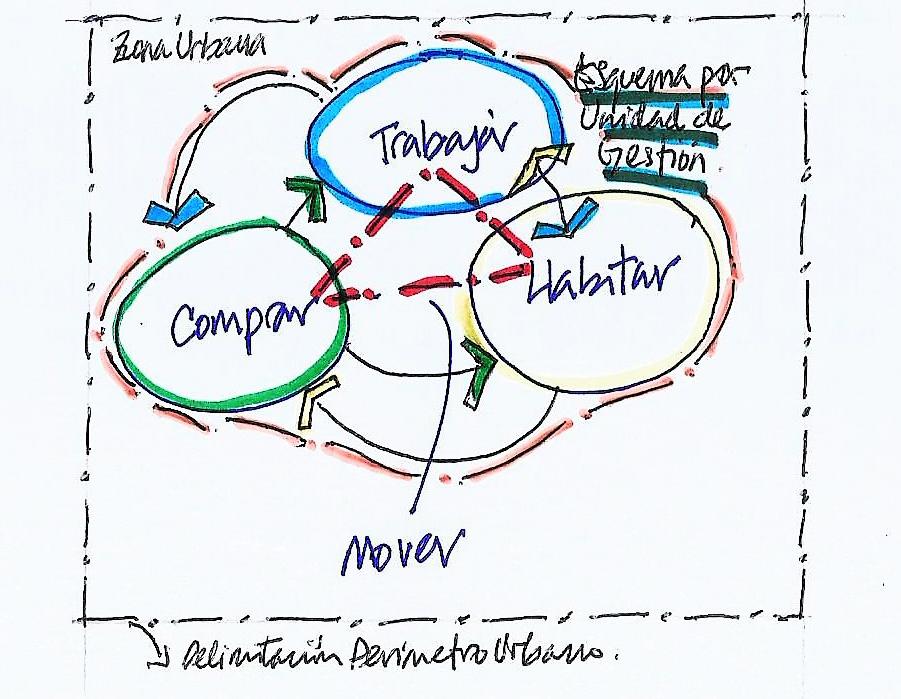 Zona Urbana
Esquema por
Unidad de
Gestión.
Trabajar
Habitar
Comprar
Mover
Delimitación Perimetro Urbano.